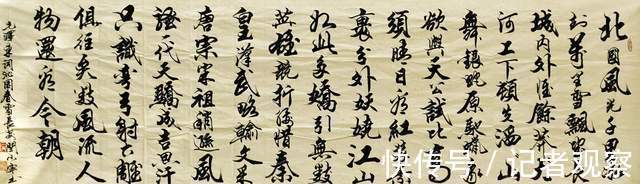 北國風光千里冰
封萬里雪飄望長
城内外惟餘莽々大
河上下頓失滔々山
舞銀蛇原馳蠟象
欲與天公試比高
須晴日看紅裝素
裹分外妖嬈江山
如此多嬌引無數
英雄競折腰惜秦
皇漢武略輸文采
唐宗宋祖稍遜風
騷一代天驕成吉思汗
只識彎弓射大雕
俱往矣數風流人
物還看今朝
毛澤東詞沁園春雪長安
快传号/记者观察